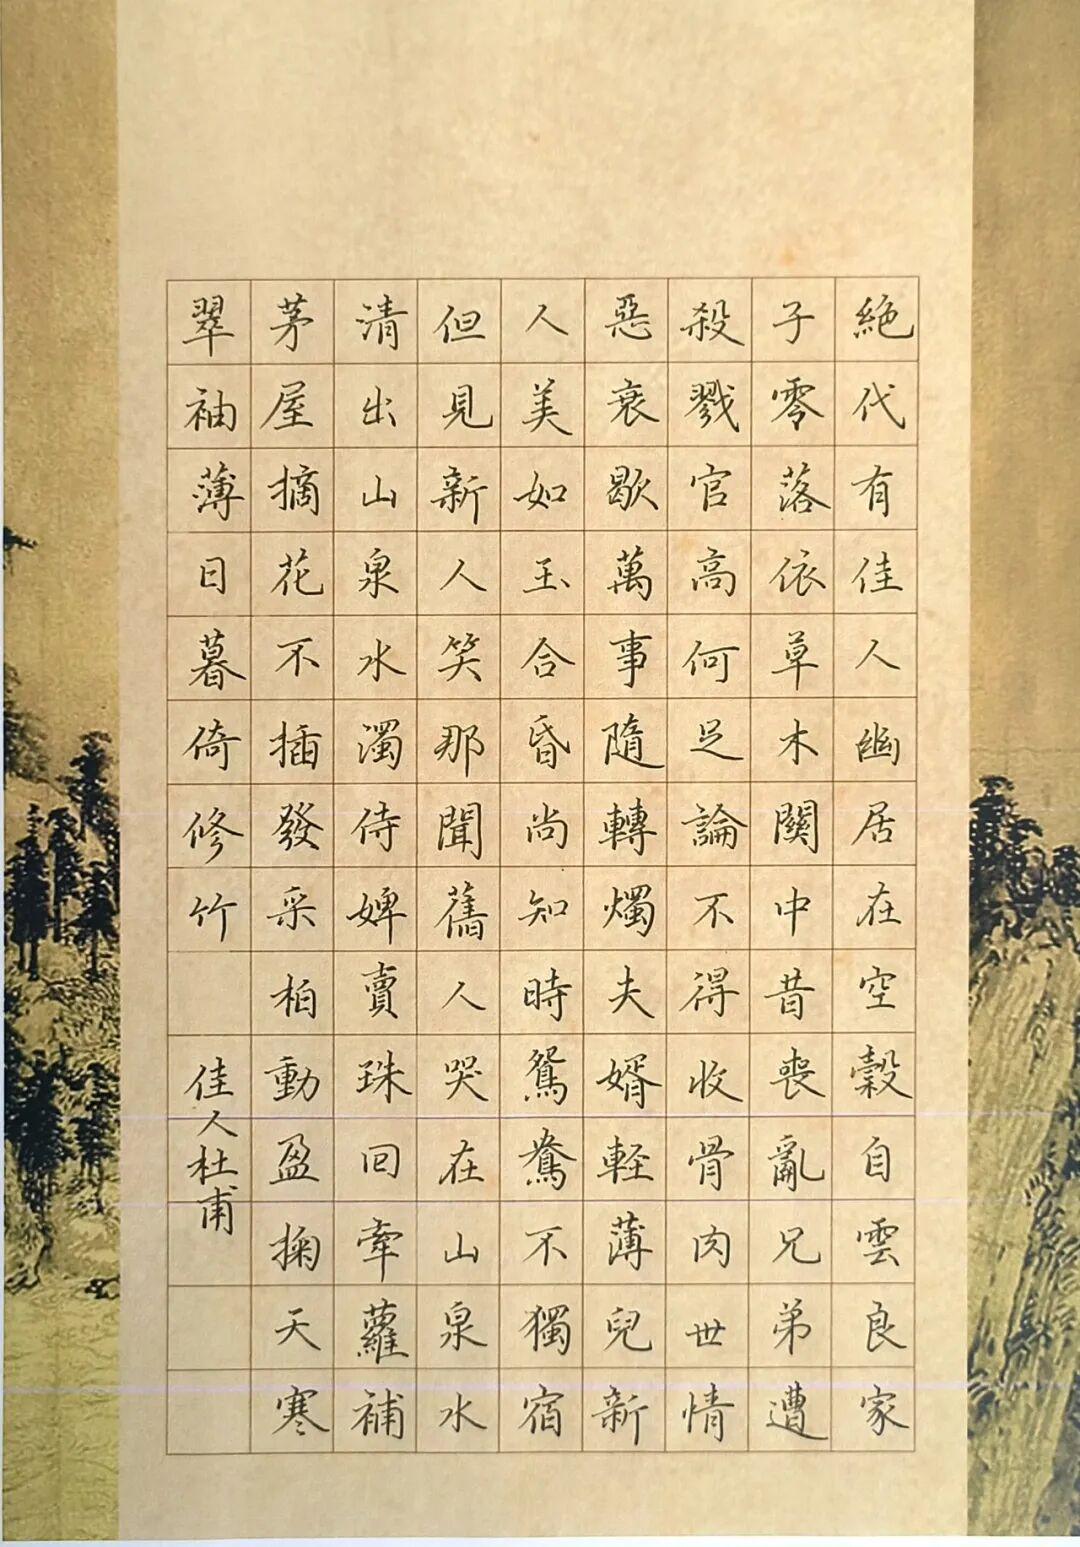 絶代有佳人幽居在空穀自雲良家
子零落依草木關中昔喪亂兄弟遭
殺戮官高何足論不得收骨肉世情
惡衰歇萬事隨轉燭夫婿輕薄兒新
人美如玉合昏尚知時鴛鴦不獨宿
但見新人笑那聞舊人哭在山泉水
清出山泉水濁侍婢賣珠回牽蘿補
茅屋摘花不插發采柏動盈掬天寒
翠袖薄日暮倚修竹
佳人杜甫